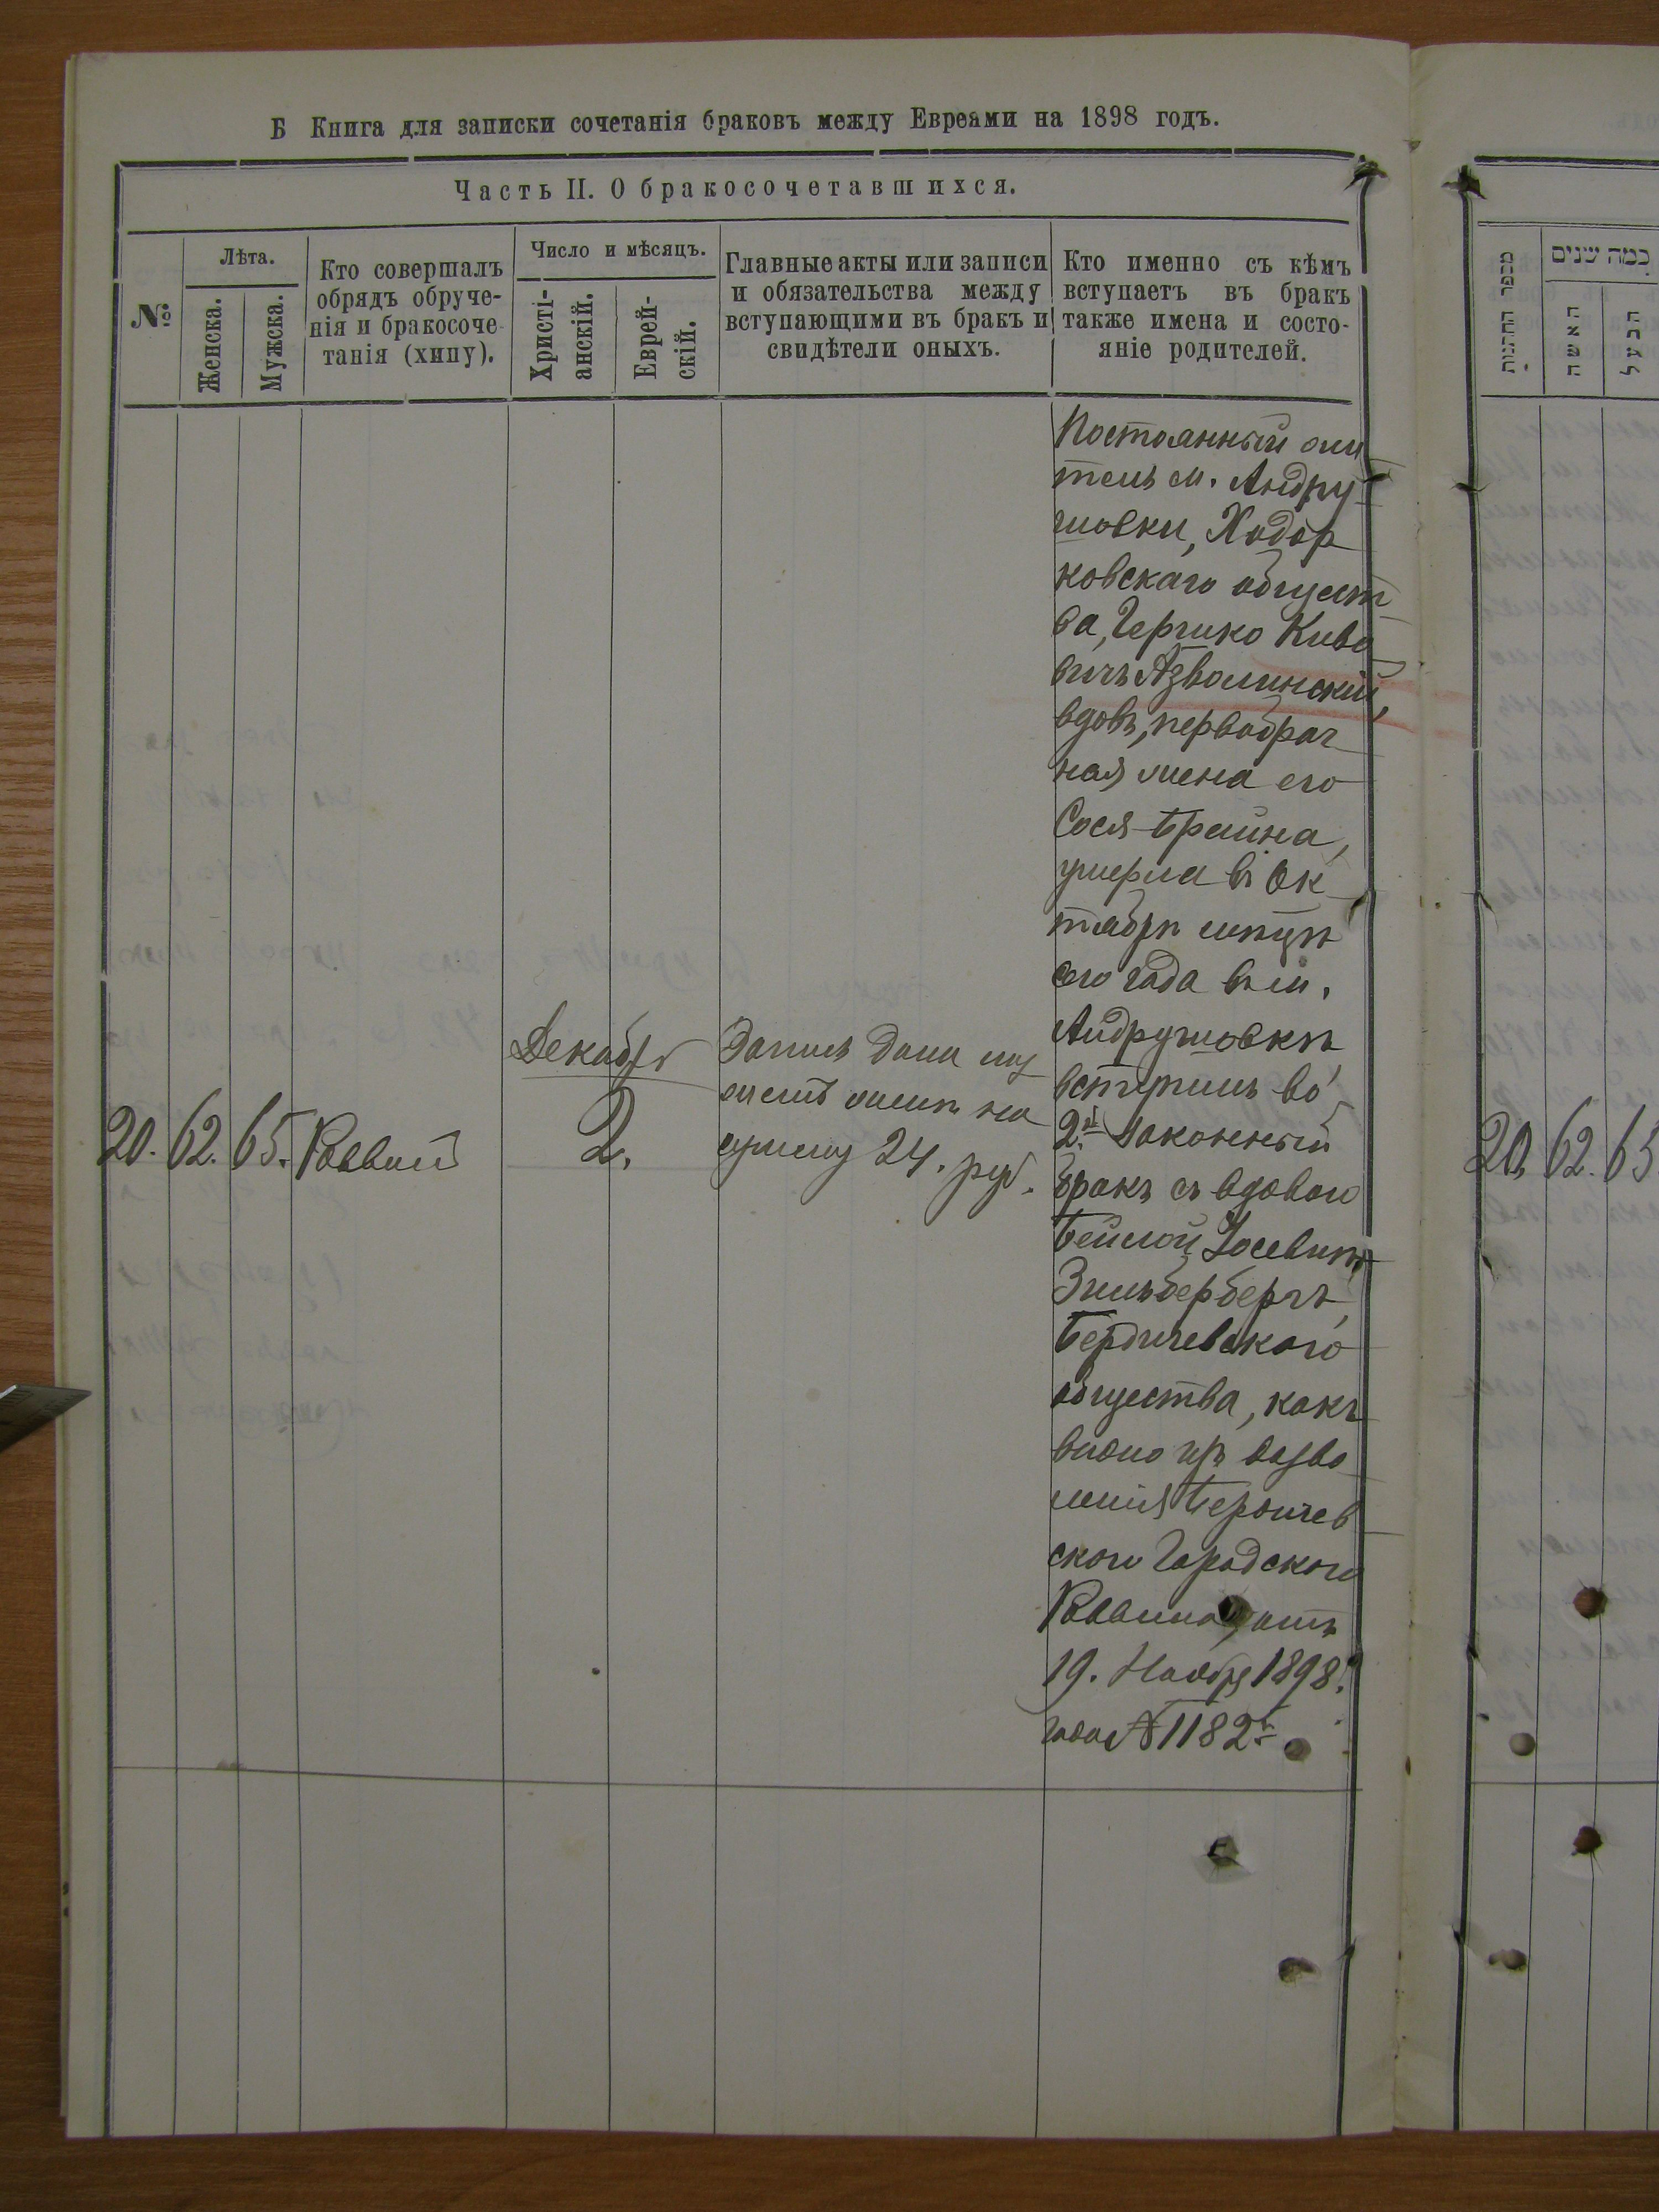 Б Книга для записки сочетанія браковъ между Евреями на 1898 годъ.
Часть II. О бракосочетавшихся.
№
Лѣта.
Женска.
Мужска.
Кто совершалъ
обрядъ обруче-
нія и бракосоче-
танія (хипу).
Число и мѣсяцъ.
Христі-
анскій.
Еврей-
скій.
Главные акты или записи
и обязательства между
вступающими въ бракъ и
свидѣтели оныхъ.
Кто именно съ кѣмъ
вступаетъ въ бракъ
также имена и состо-
яніе родителей.
20.
62.
65.
Раввин
Декабрь
2.
Запись дана му
жемъ женѣ на
сумму 24. руб.
Постоянный жи
тель м. Андру
шовки, Ходор
ковскаго общест
ва, Гершко Киво
вичъ Азволинскій,
вдовъ, первобрач
ная жена его
Сося-Брайна,
умерла въ Ок
тябрѣ мѣсяцѣ
сего года въ м.
Андрушовкѣ
вступилъ во
2й законный
бракъ съ вдовою
Бейлой Іосевик
Зильбербергъ,
Бердичевскаго
общества, какъ
видно изъ дозво
ленія Бердичев
скаго Городского
Раввина, отъ
19. Ноября 1898.
года № 1182
מספר החתונות
כמה שנים
האשה
הבעל
20
62.
65